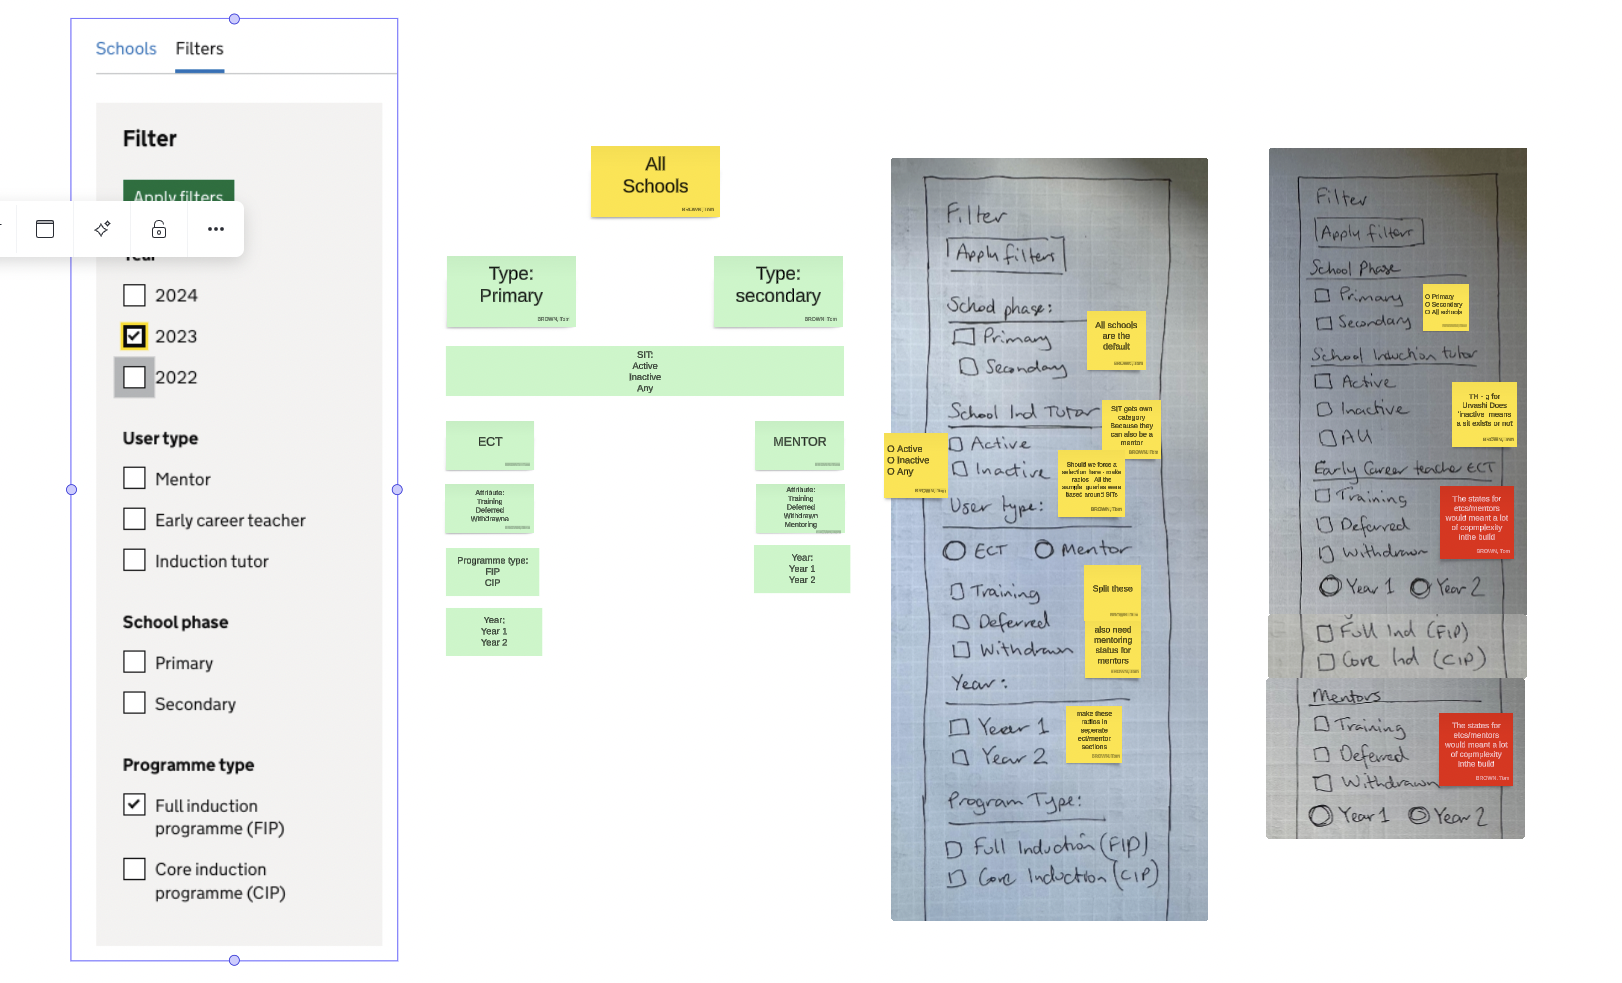 Schools Filters
Filter
Apply filters
Year
2024
2023
2022
User type
Mentor
Early career teacher
Induction tutor
School phase
Primary
Secondary
Programme type
Full induction
programme (FIP)
Core induction
programme (CIP)
All
Schools
BROWN, Tom
Type:
Primary
BROWN, Tom
Type:
secondary
BROWN, Tom
SIT:
Active
Inactive
Any
ECT
MENTOR
Attribute:
Training
Deferred
Withdrawna
Attribute:
Training
Deferred
Withdrawn
Mentoring
Programme type:
FIP
CIP
Year:
Year 1
Year 2
Year;
Year 1
Year 2
Filter
Apply filters
School phase:
Primary
Secondary
All schools
are the
default
School Ind Tutor
Active
Inactive
O Active
O Inactive
O Any
BROWN, Tom
SIT gets own
category
Because they
can also be a
mentor
BROWN, Tom
Should we force a
selection here - make
radios. All the
example queries were
based around SITs
BROWN, Tom
User type:
ECT Mentor
Training
Deferred
Withdrawn
Split these
also need
mentoring
status for
mentors
Year:
Year 1
Year 2
make these
radios in
seperate
ect/mentor
sections
Program Type:
Full Induction (FIP)
Core Induction (CIP)
Filter
Apply filters
School Phase
Primary
Secondary
O Primary
O Secondary
O All schools
School Induction tutor
Active
Inactive
All
TH - g for
Urvashi Does
'inactive' means
a sit exists or not
BROWN, Tom
Early Career teacher ECT
Training
Deferred
Withdrawn
The states for
etcs/mentors
would meant a lot
of copmplexity
inthe build
BROWN, Tom
Year 1 Year 2
Full Ind (FIP)
Core Ind (CIP)
Mentors
Training
Deferred
Withdrawn
The states for
etcs/mentors
would meant a lot
of copmplexity
inthe build
BROWN, Tom
Year 1 Year 2